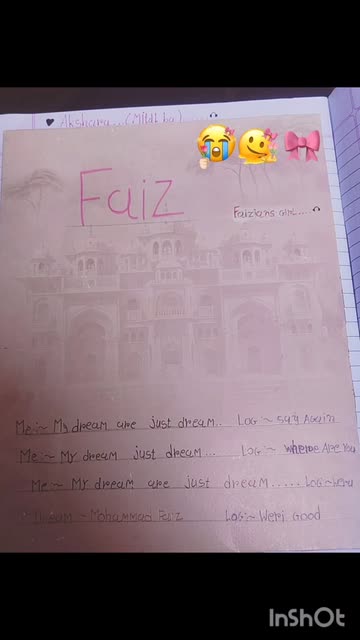 Akshara...(Mildi ba)......
Faiz
Faizians girl....
Me:~ My dream are just dream.. Log:~ Say Again
Me:~ My dream just dream... Log:~ where Are You
Me:~ My dream are just dream..... Log:~
Dream ~ Mohammad Faiz Log:~ Weri Good
InShOt